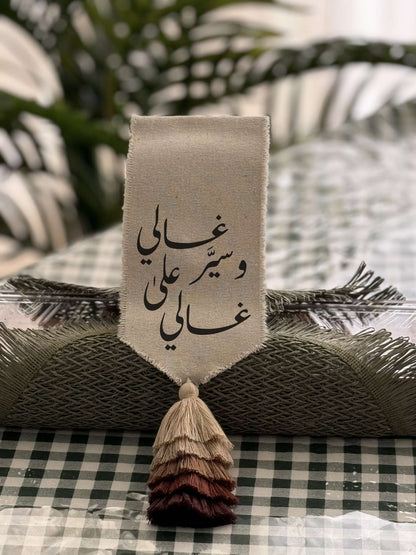 غالي
وسيَّر
علىٰ
غالي